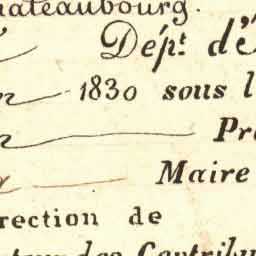 hateaubourg.
Dép.t d'
1830 sous l
Pr
Maire
rection de
des Contribu